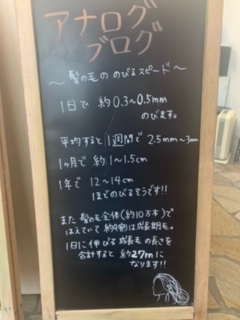 アナログ
ブログ
～髪の毛ののびるスピード～
1日で 約0.3～0.5mm
のびます。
平均すると1週間で 2.5mm～3mm
1ヶ月で 約1～1.5cm
1年で 12～14cm
までのびるそうです!!
また 髪の毛全体(約10万本)で
はえていて 約9割は成長期毛。
1日に伸びる成長毛の長さを
合計すると 約27mに
なります!!